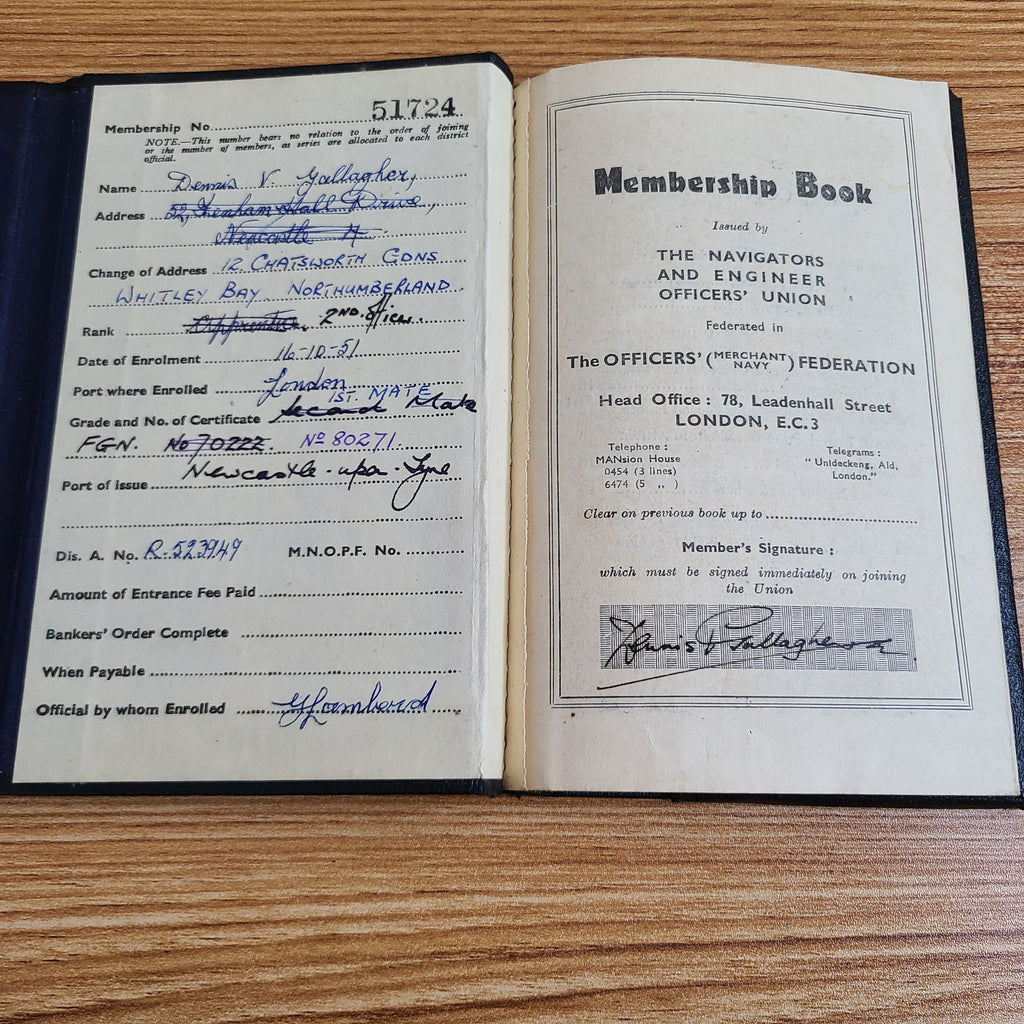 51724
Membership No
NOTE.—This number bears no relation to the order of joining
or the number of members, as series are allocated to each district
official.
Name Dennis V. Gallagher,
Address 52, Fenham Hall Drive,
Newcastle 4
Change of Address 12 CHATSWORTH GDNS
WHITLEY BAY NORTHUMBERLAND
Rank Apprentice, 2ND. Officer.
Date of Enrolment 16-10-51
Port where Enrolled London
1ST. MATE
Grade and No. of Certificate Second Mate
FGN. No 70222. Nº 80271.
Port of issue Newcastle-upon-Tyne
Dis. A. No. R.523949 M.N.O.P.F. No.
Amount of Entrance Fee Paid
Bankers' Order Complete
When Payable
Official by whom Enrolled
Membership Book
Issued by
THE NAVIGATORS
AND ENGINEER
OFFICERS' UNION
Federated in
The OFFICERS' (MERCHANT NAVY) FEDERATION
Head Office : 78, Leadenhall Street
LONDON, E.C.3
Telephone :
MANsion House
0454 (3 lines)
6474 (5 „ )
Telegrams :
"Unideckeng, Ald,
London."
Clear on previous book up to
Member's Signature :
which must be signed immediately on joining
the Union
Dennis V Gallagher